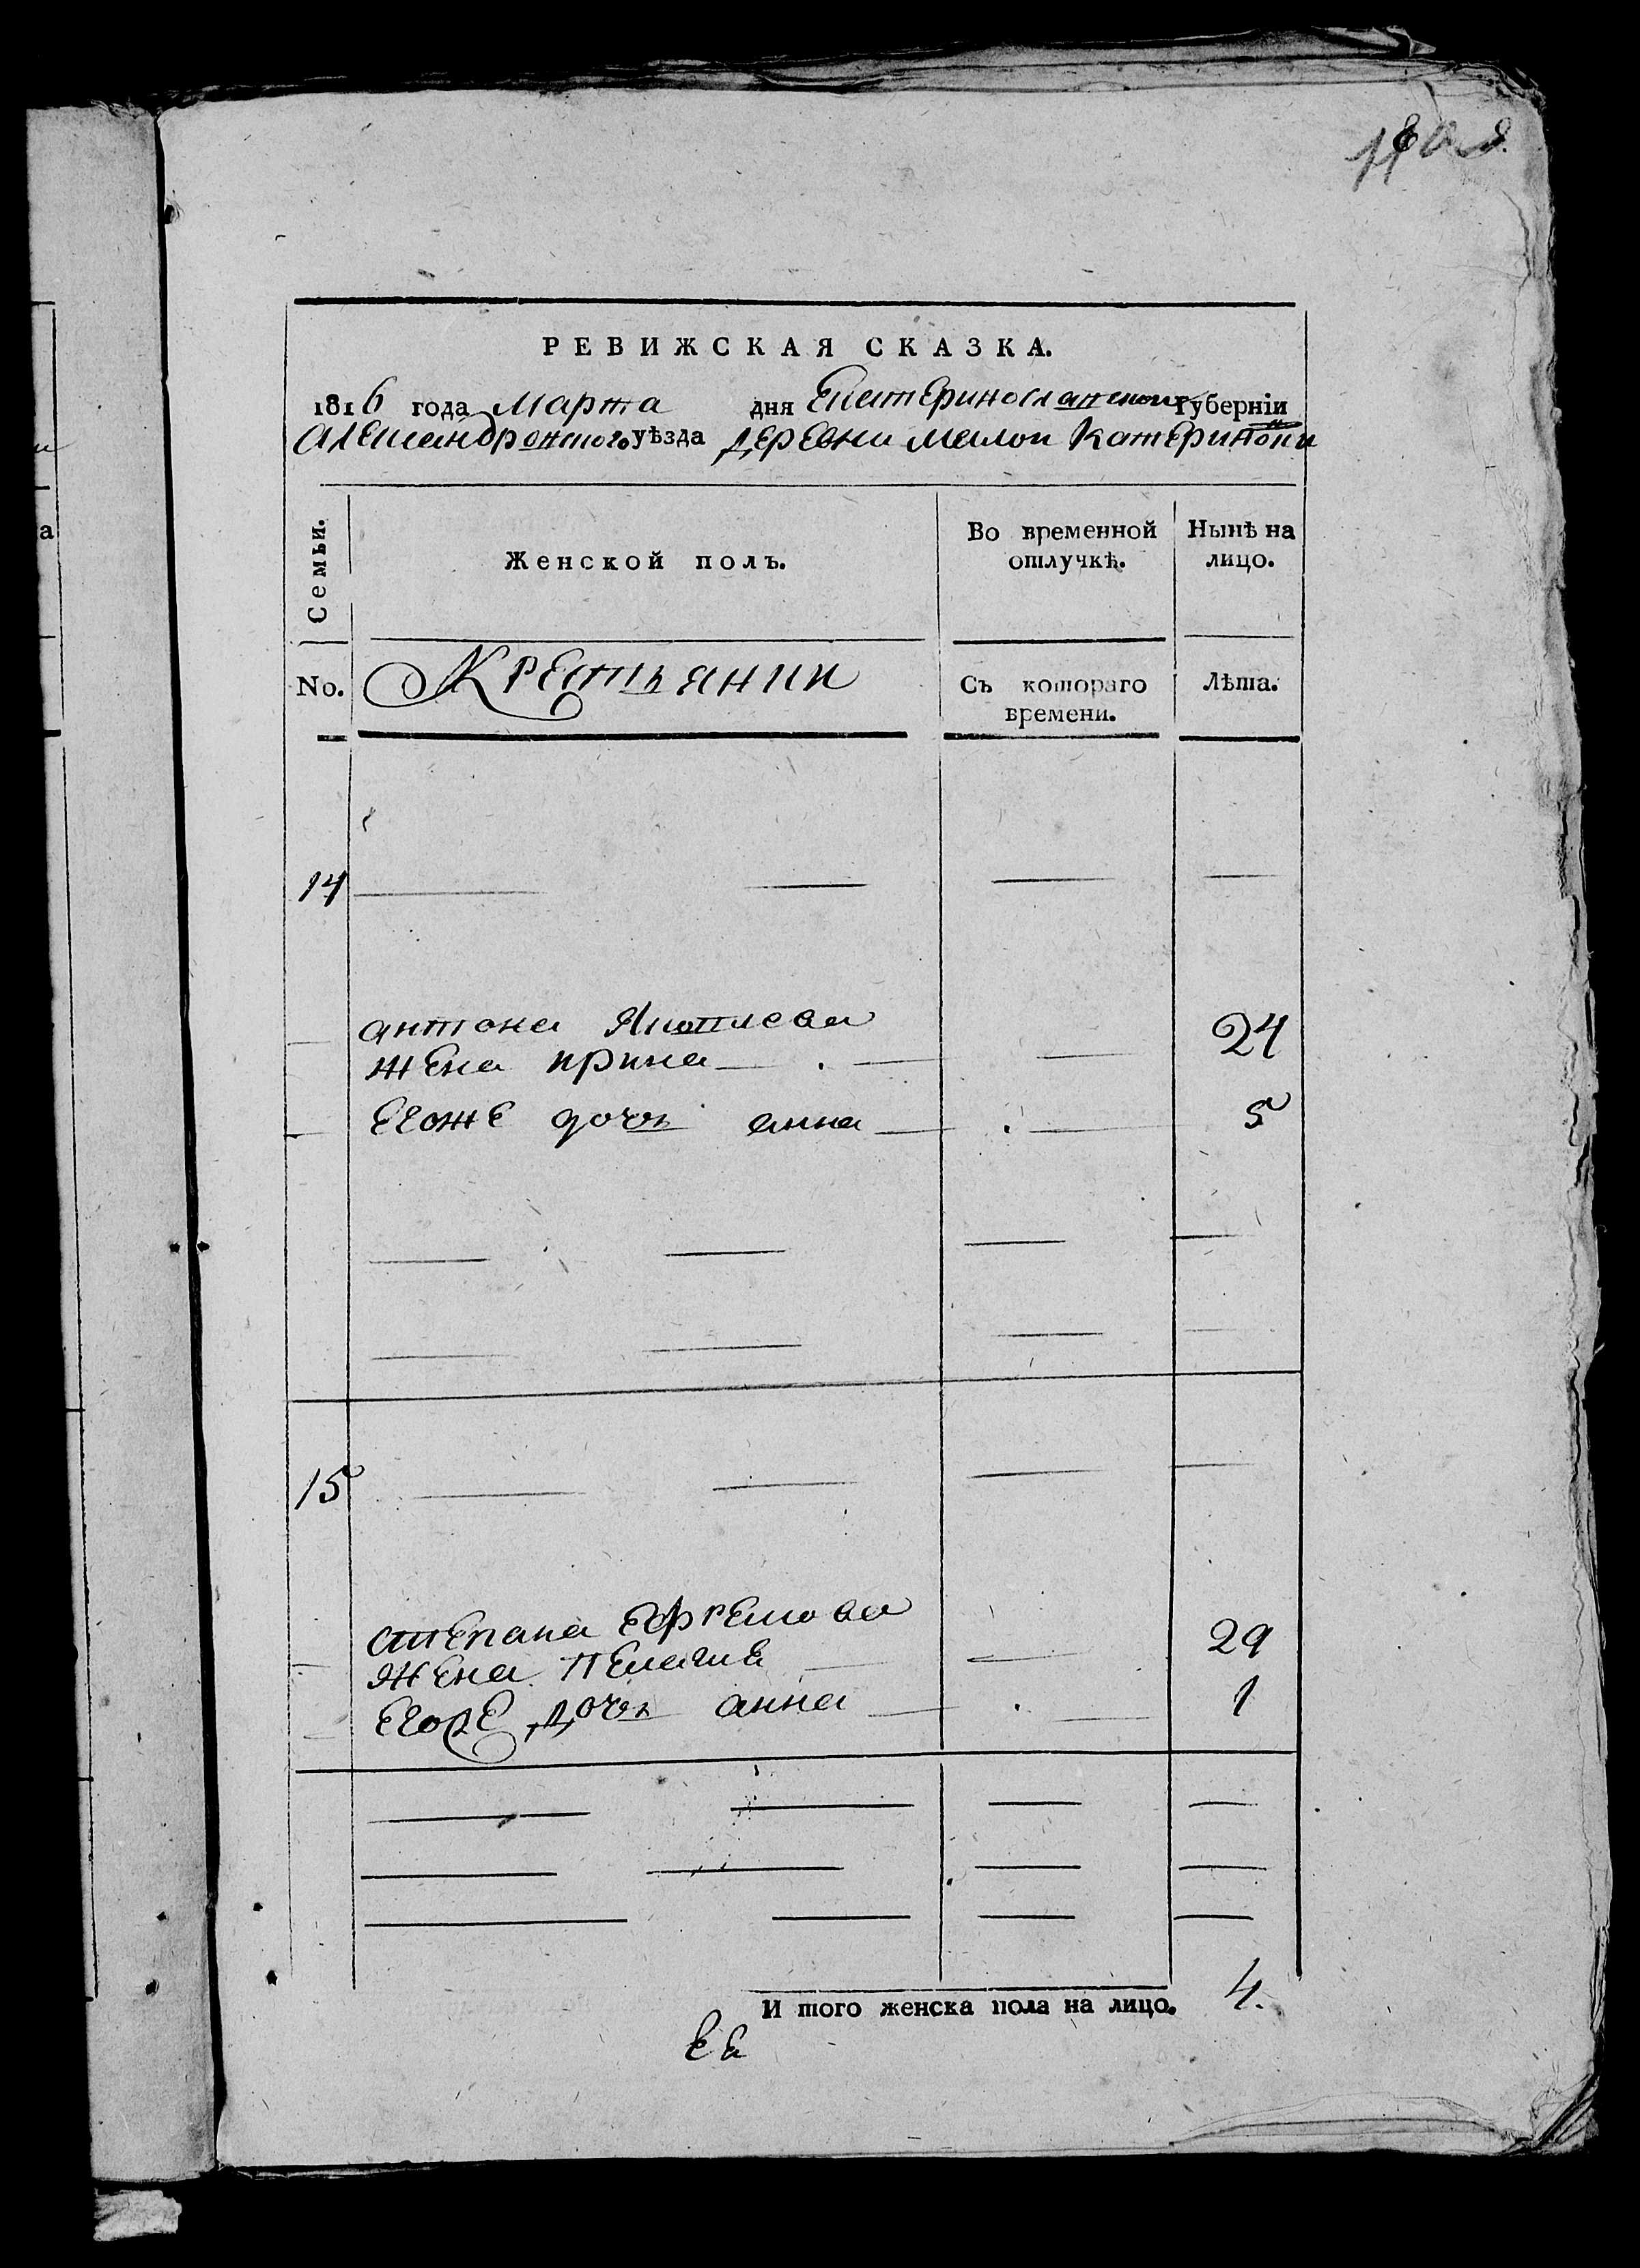 РЕВИЖСКАЯ СКАЗКА.
1816 года Марта дня Екатеринославской губерніи
Александровского уѣзда деревни малой Катериновки
Семьи.
Женской полъ.
Во временной отлучкѣ.
Нынѣ на лицо.
No.
Крестьянин
Съ котораго времени.
Лѣта.
14
антона Яковлева
жена ирина 24
Егоже дочь анна 5
15
степана Ефремова
жена Пелагия 29
Егоже дочь анна 1
И того женска пола на лицо. 4.